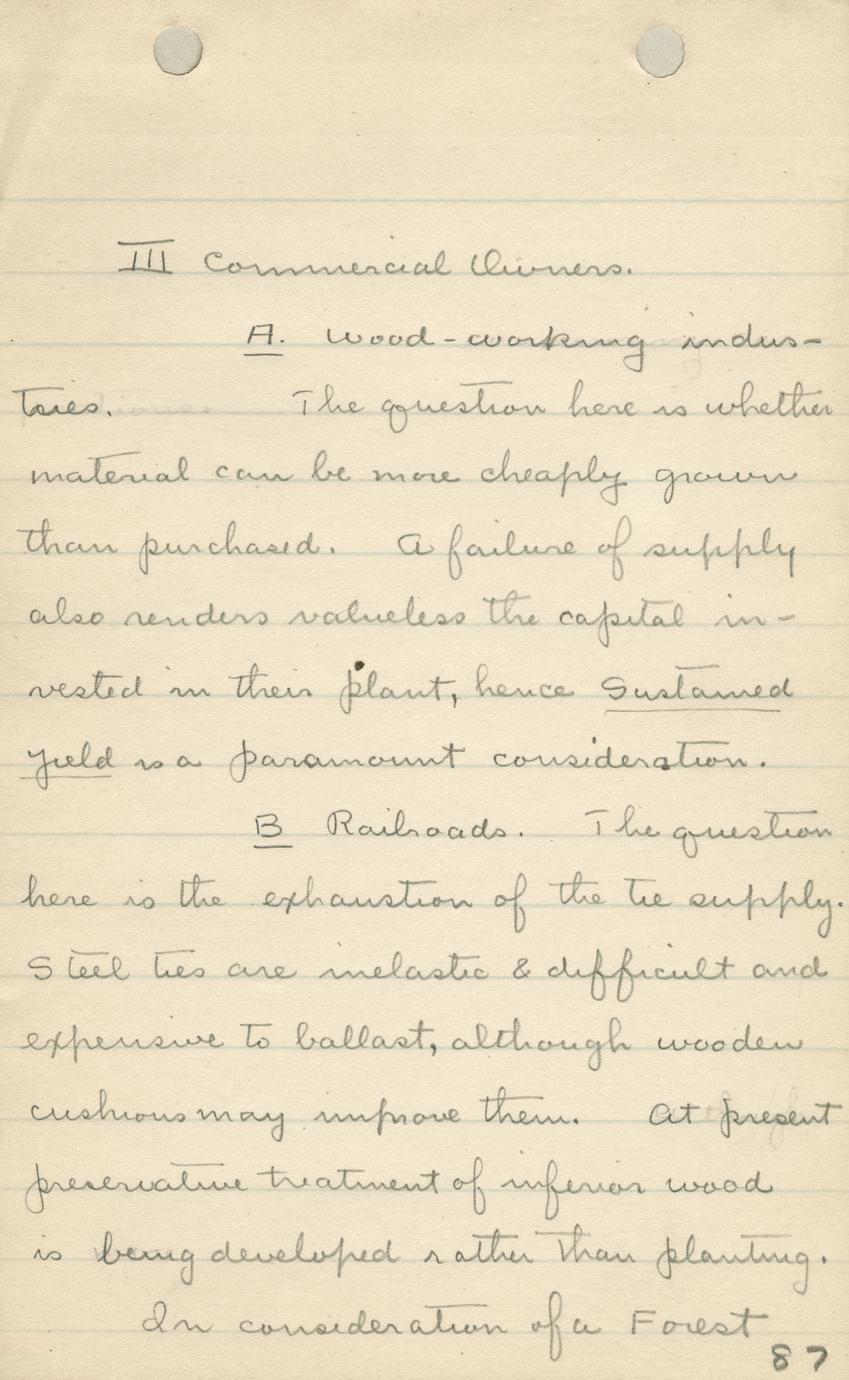 III Commercial Owners.
A. Wood-working indus-
tries. The question here is whether
material can be more cheaply grown
than purchased. A failure of supply
also renders valueless the capital in-
vested in their plant, hence Sustained
yield is a paramount consideration.
B Railroads. The question
here is the exhaustion of the tie supply.
Steel ties are inelastic & difficult and
expensive to ballast, although wooden
cushions may improve them. At present
preservative treatment of inferior wood
is being developed rather than planting.
In consideration of a Forest
87